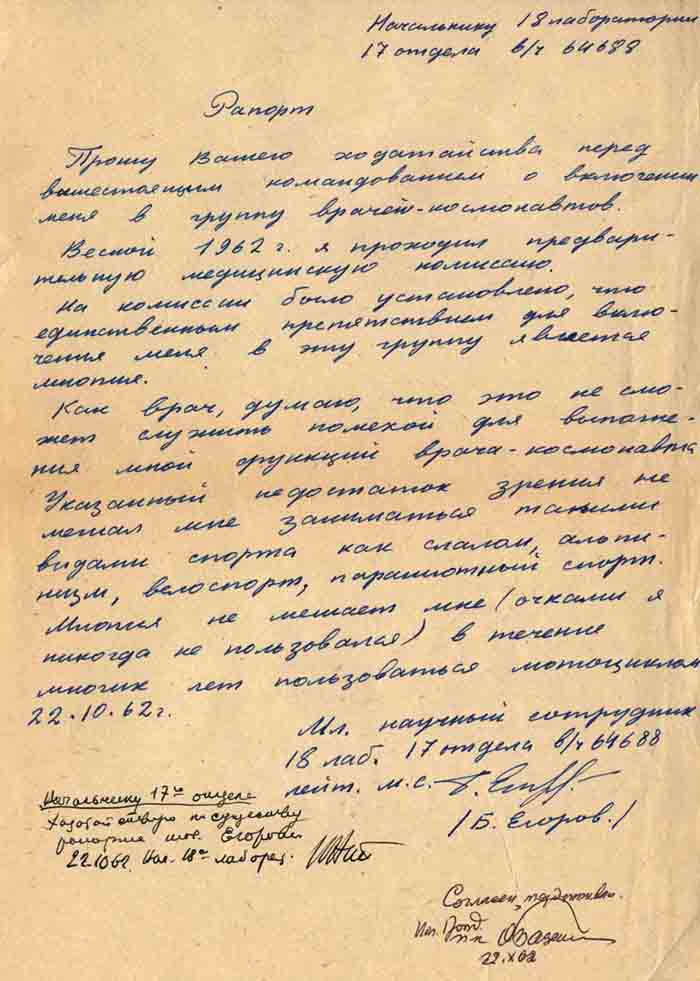 Начальнику 18 лаборатории
17 отдела в/ч 64688
Рапорт
Прошу Вашего ходатайства перед
вышестоящим командованием о включении
меня в группу врачей-космонавтов.
Весной 1962 г. я проходил предвари-
тельную медицинскую комиссию.
На комиссии было установлено, что
единственным препятствием для вклю-
чения меня в эту группу является
миопия.
Как врач, думаю, что это не смо-
жет служить помехой для выполне-
ния мной функций врача-космонавта
Указанный недостаток зрения не
мешал мне заниматься такими
видами спорта как слалом, альпи-
низм, велоспорт, парашютный спорт.
Миопия не мешает мне (очками я
никогда не пользовался) в течение
многих лет пользоваться мотоциклом
22.10.62г.
Мл. научный сотрудник
18 лаб. 17 отдела в/ч 64688
лейт. м.с.
/Б. Егоров./
Начальнику 17го отдела
Ходатайствую по существу
рапорта тов. Егорова
22.10.62. Нач. 18й лаборат.
Согласен,
Нач.
22.X.62